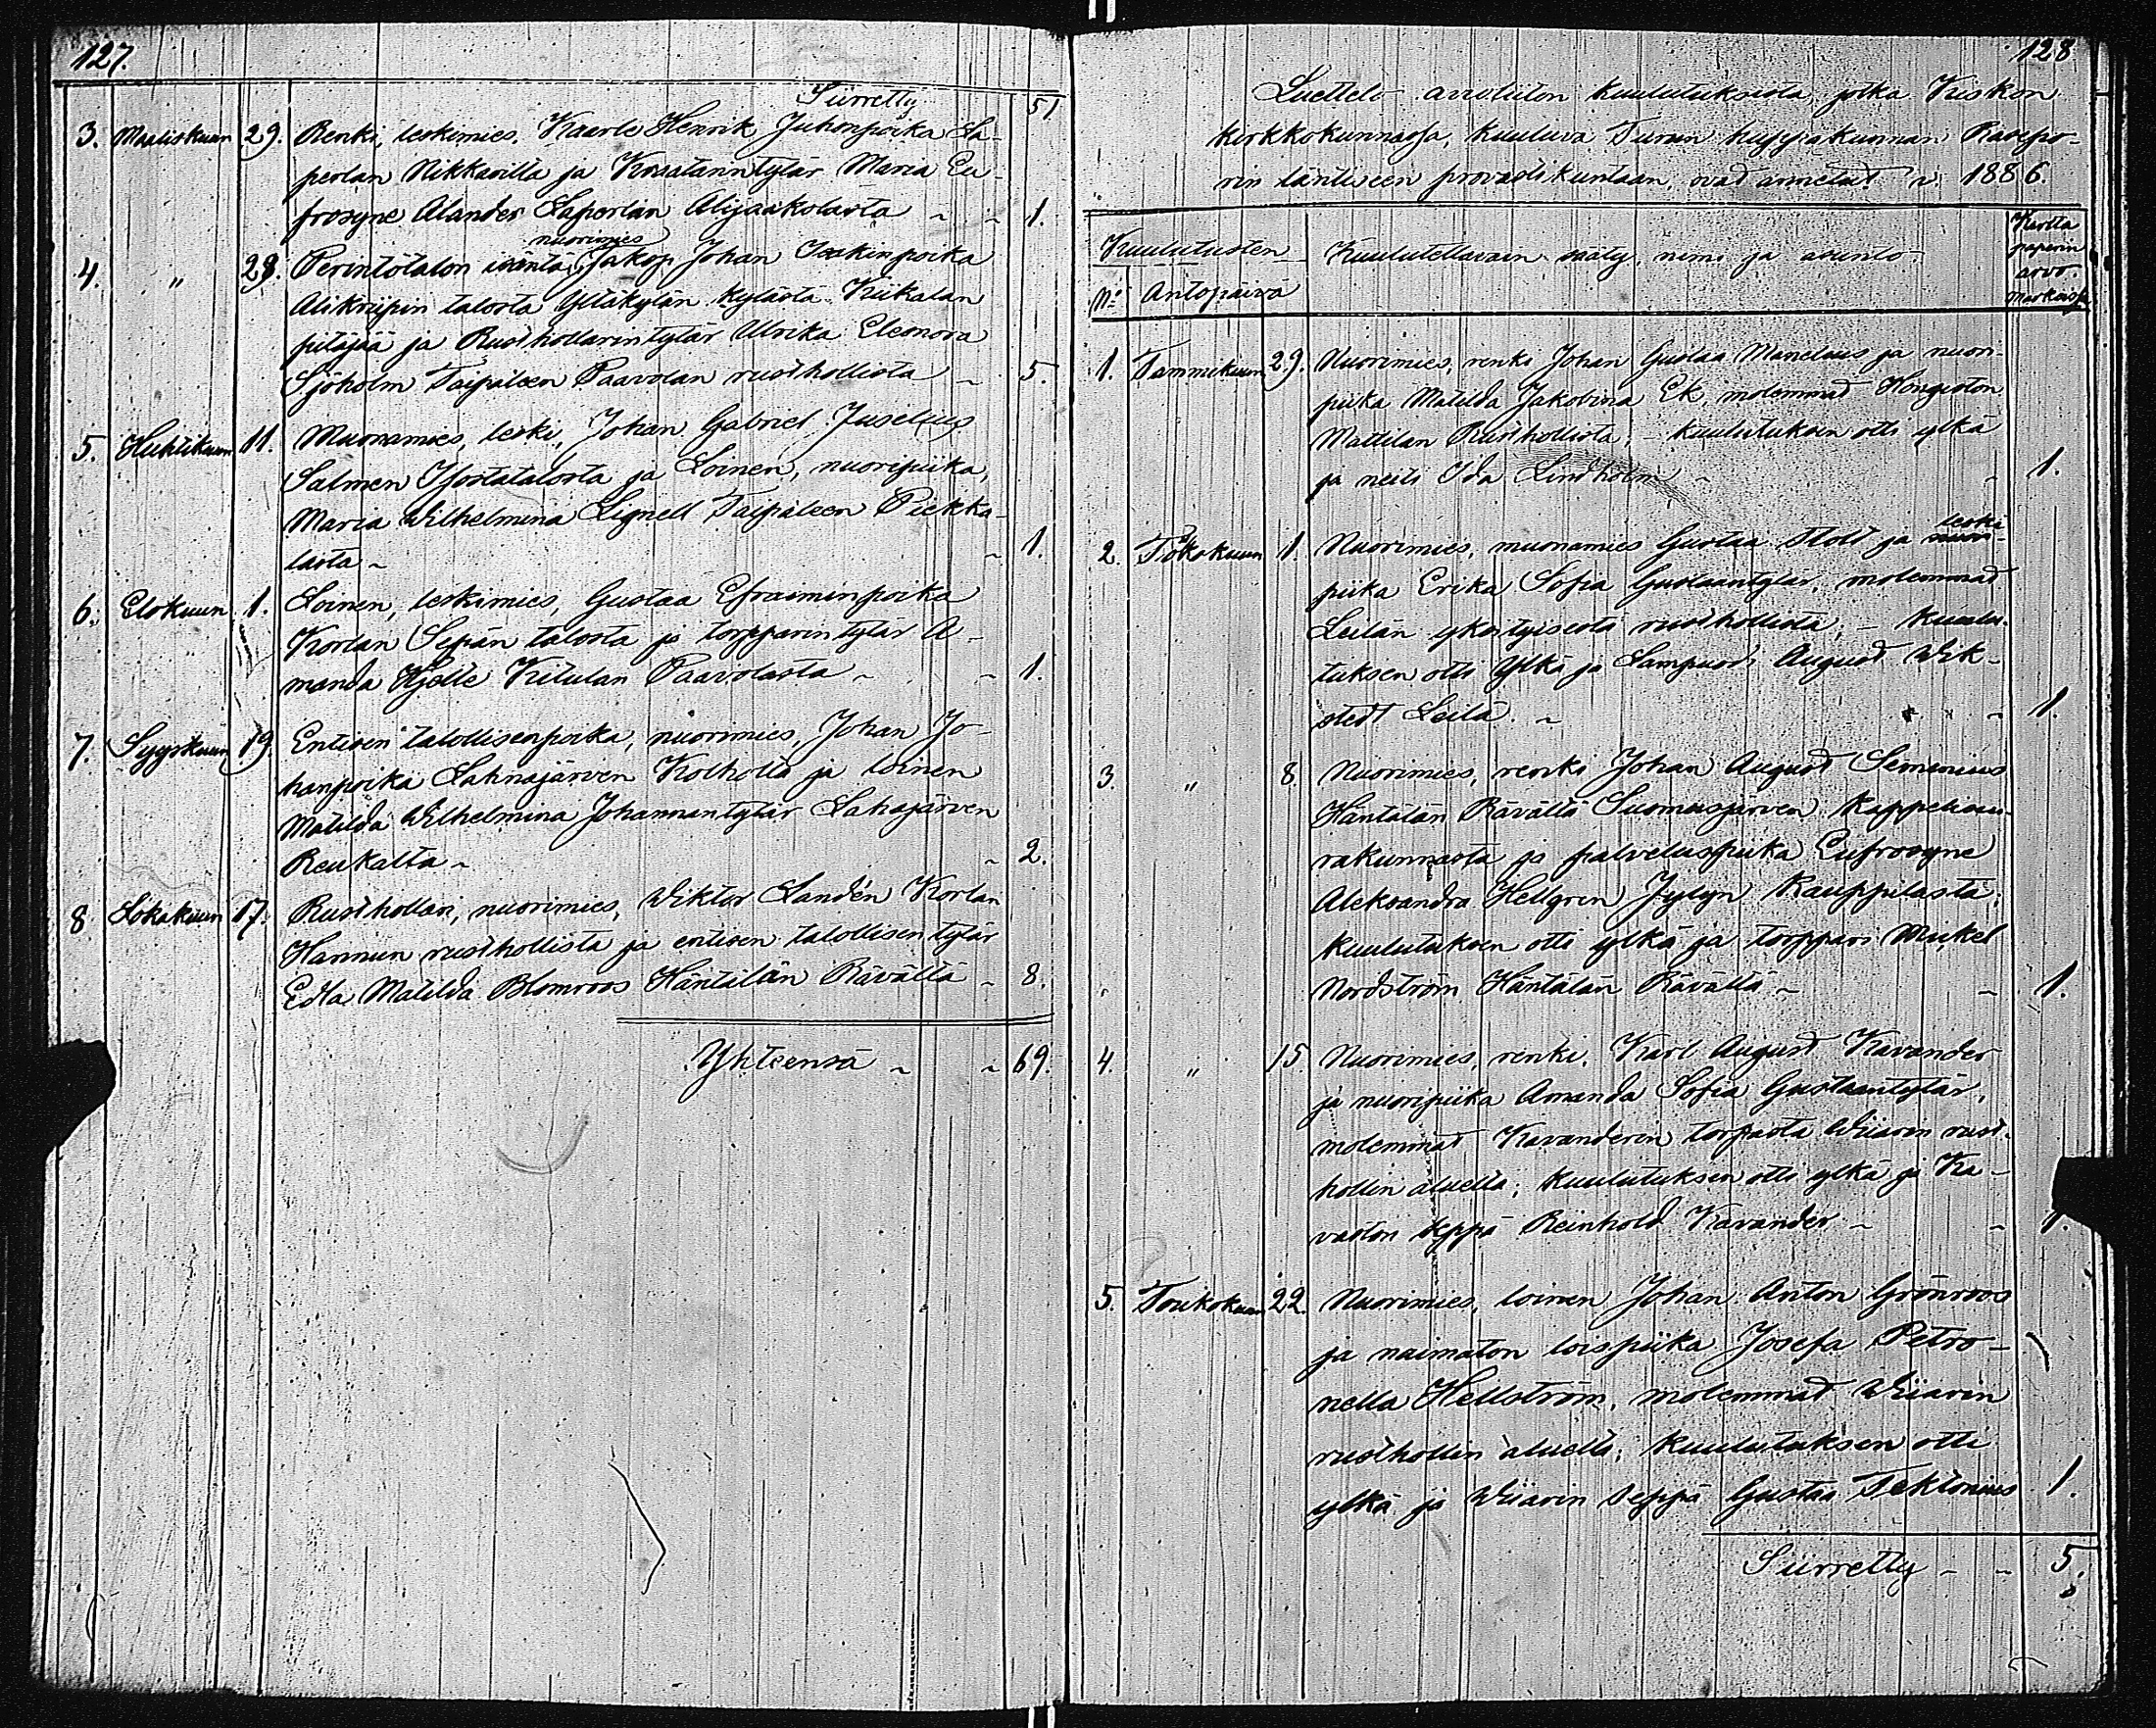 127.
Siirretty 51
3. Maaliskuun 29. Renki, leskimies, Kaarle Henrik Juhonpoika La-
perlan Nikkarilta ja Maria Eu-
frosyne Alander Laperlan Alijaakolasta 1.
nuorimies
4. " 28. Perintötalon isäntä, Jakop Johan Isakinpoika
Alikriipin talosta Yltäkylän kylästä Kiikalan
pitäjää ja Rusthollarintytär Ulrika Eleonora
Sjöholm Taipaleen Paavolan rusthollista 5.
5. Huhtikuun 11. Muonamies, leski, Johan Gabriel Juselius
Salmen ja Loinen, nuoripiika,
Maria Wilhelmina Lignell Taipaleen Piekka-
lasta 1.
6. Elokuun 1. Loinen, leskimies, Gustaa Efraiminpoika
Korlan Sepän talosta ja torpparintytär A-
manda Hjelte Kitulan Paavolasta 1.
7. Syyskuun 19. Entisen talollisenpoika, nuorimies, Johan Jo-
hanpoika Lahnajärven ja loinen
Matilda Wilhelmina Johannantytär Lahajärven
Reukalta 2.
8. Lokakuun 17. Rusthollari, nuorimies, Wiktor Landén Korlan
Hannun rusthollista ja entisen talollisentytär
Edla Matilda Blomroos Häntälän Rävältä 8.
Yhteensä 69.
128
Luettelo arvoluton kuulutuksista jotka Kiskon
kirkkokunnassa, kuuluva Turun hiippakunnan Raasepo-
rin läntiseen provastikuntaan, ovat annetut v. 1886.
Kuulutusten Kuulutettavain sääty, nimi ja asunto Kartta
paperin
arvo.
Markoissa
No Antopäivä
1. Tammikuun 29. Nuorimies, renki Johan Gustaa Manelius ja nuori-
piika Matilda Jakobina Ek, molemmat Hongiston
Mattilan Rusthollista; - kuulutuksen otti ylkä
ja neiti Ida Lindholm 1.
leski
2. Tokokuun 1. Nuorimies, muonamies Gustaa Stolt ja nuori-
piika Erika Sofia Gustaantytär, molemmat
Leilän yksityisestä rusthollista, - kuulu-
tuksen otti ylkä ja Lampuodi August Wek-
stedt Leilä. 1.
3. " 8. Nuorimies, renki Johan August Semenius
Häntälän Rävältä Suomusjärven kappeliseu-
rakunnasta ja palveluspiika Eufrosyne
Aleksandra Hellgren Jylyn Kauppilasta;
kuulutuksen otti ylkä ja torppari Mikel
Nordström Häntälän Rävältä 1.
4. " 15. Nuorimies, renki, Karl August Kavander
ja nuoripiika Amanda Sofia Gustaantytär,
molemmat Kavanderin torpasta Wiiarin rust-
hollin aluella; kuulutuksen otti ylkä ja Ka-
vaston seppä Reinhold Kavander 1.
5. Toukokuun 22. Nuorimies, loinen Johan Anton Grönroos
ja naimaton loispiika Josefa Petro-
nella Hellström, molemmat Wiiarin
rusthollin aluelta; kuulutuksen otti
ylkä ja Wiiarin seppä Gustaa Tektonius 1.
Siirretty 5.